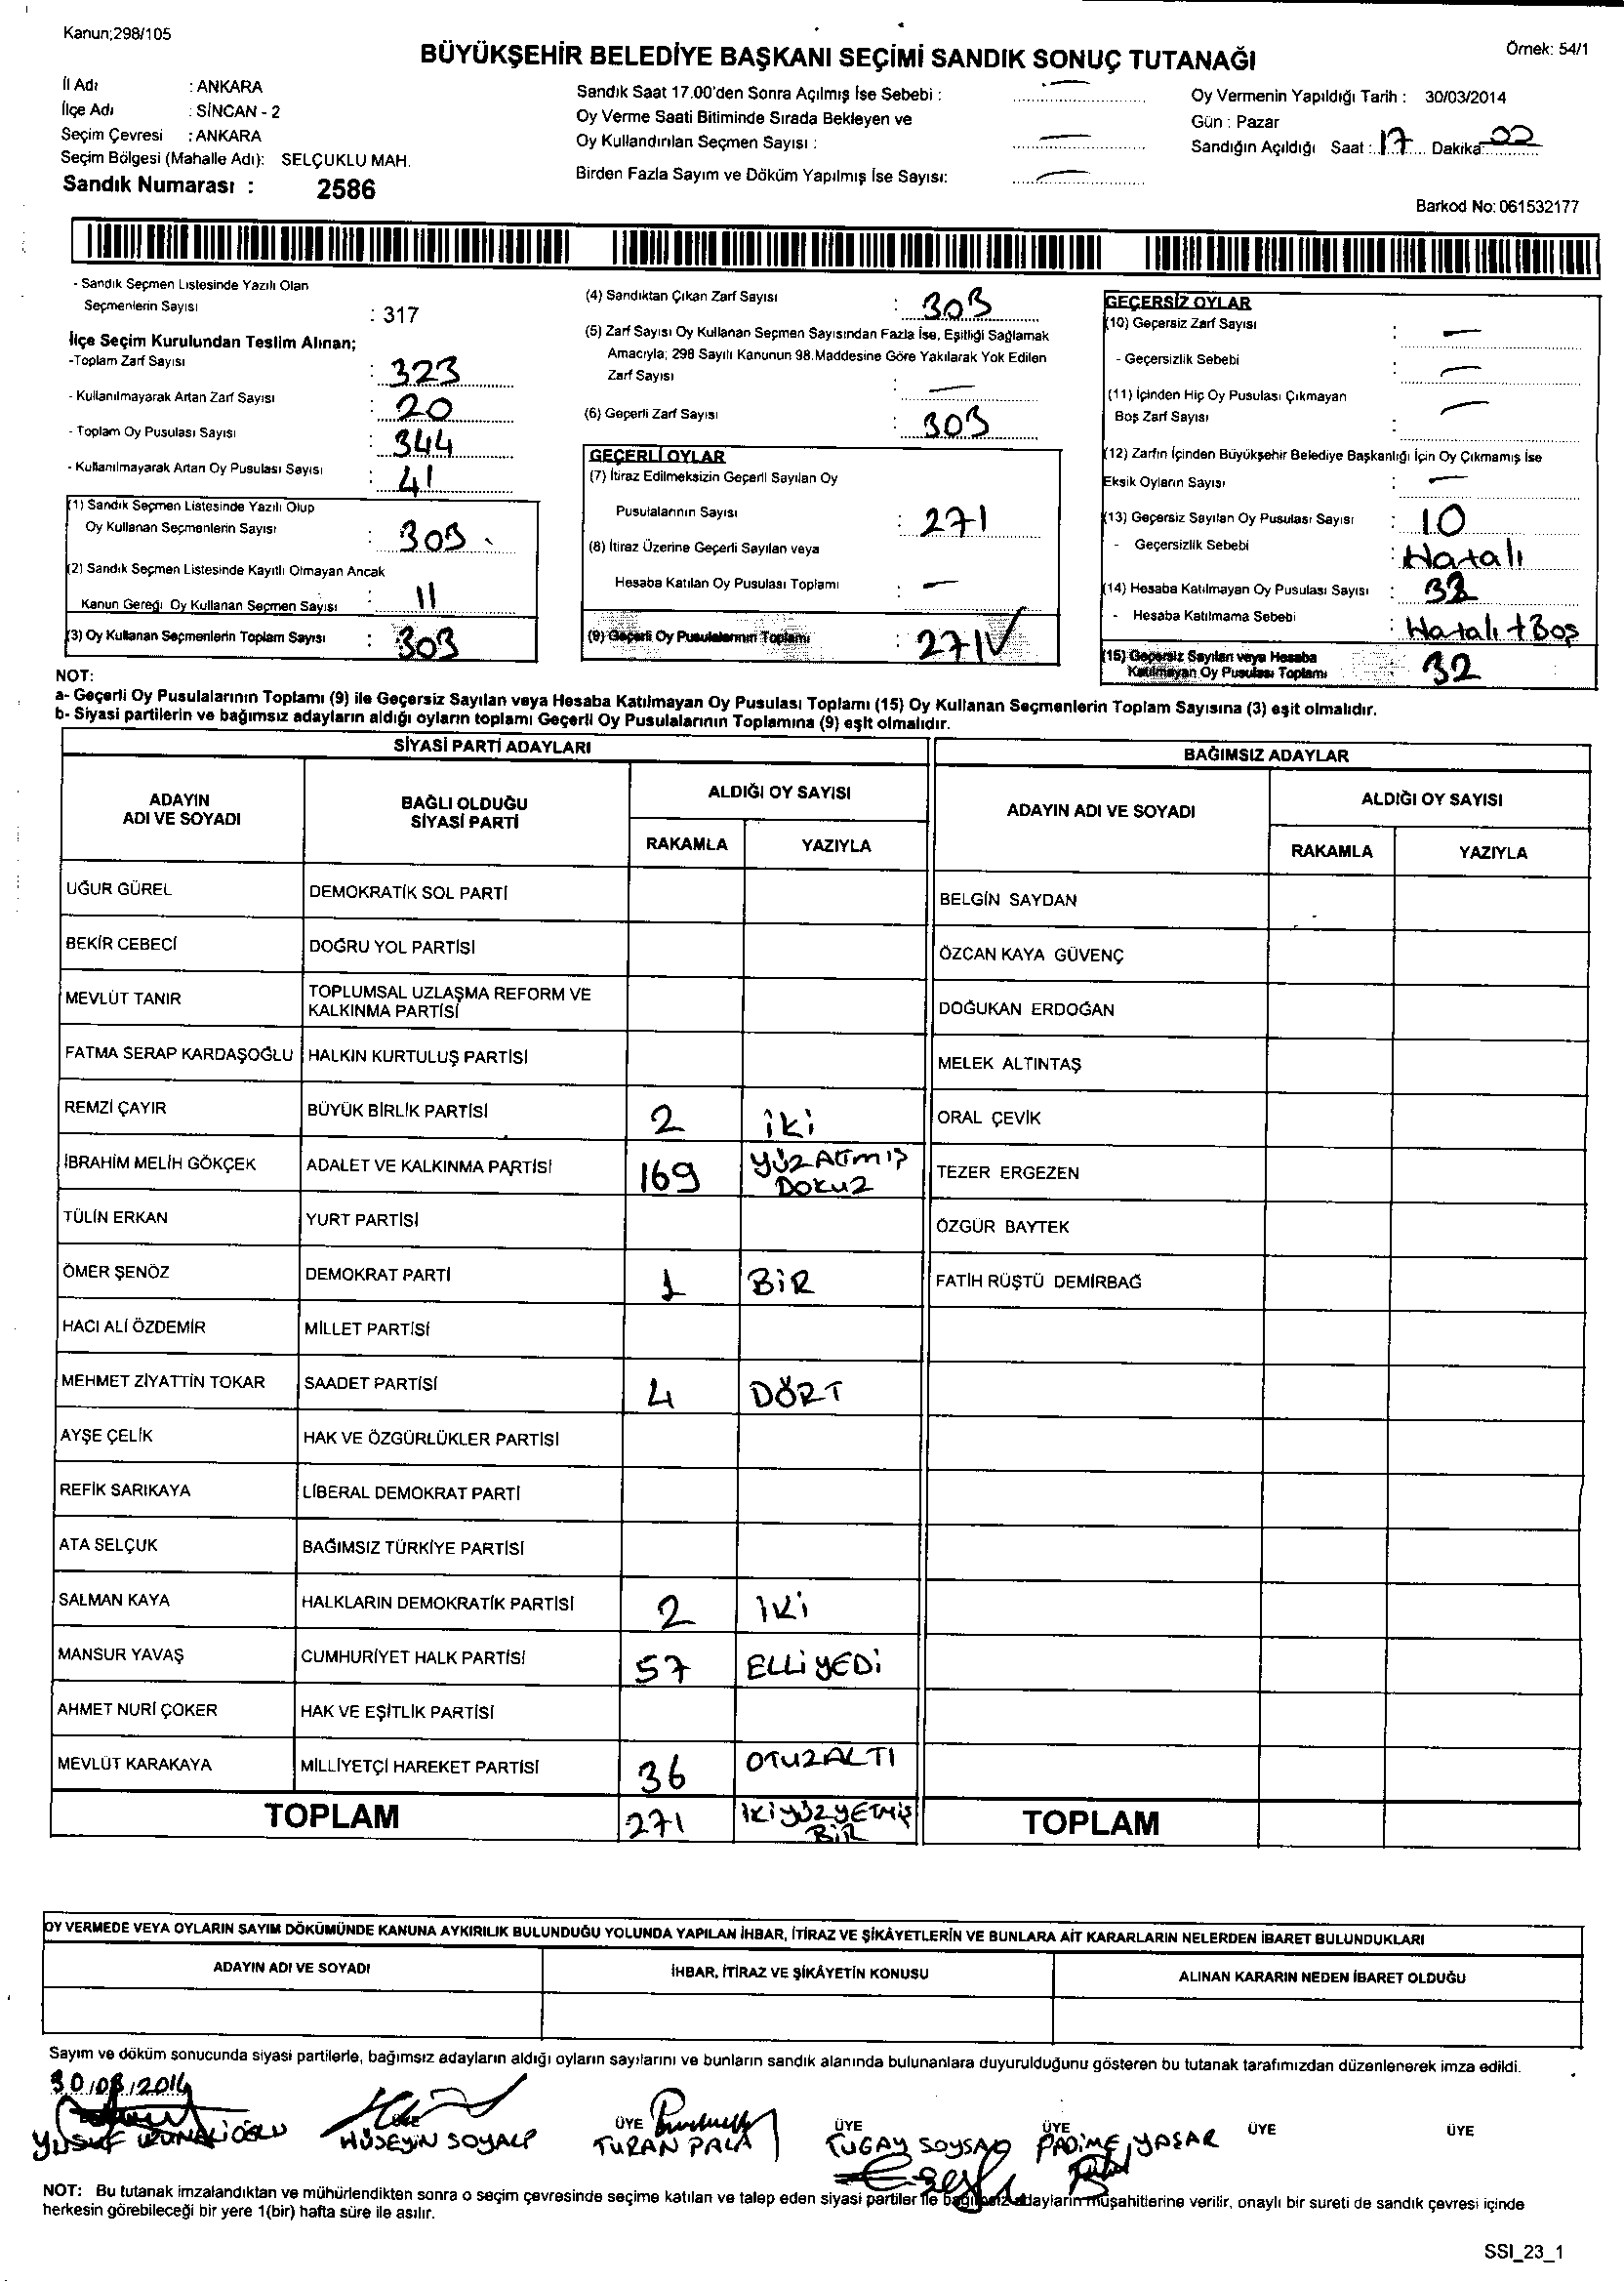 Kanun;298/105
Örnek: 54/1
BÜYÜKŞEHİR BELEDİYE BAŞKANI SEÇİMİ SANDIK SONUÇ TUTANAĞI
İl Adı : ANKARA
İlçe Adı : SİNCAN - 2
Seçim Çevresi : ANKARA
Seçim Bölgesi (Mahalle Adı): SELÇUKLU MAH.
Sandık Numarası : 2586
Sandık Saat 17.00'den Sonra Açılmış İse Sebebi : —
Oy Verme Saati Bitiminde Sırada Bekleyen ve
Oy Kullandırılan Seçmen Sayısı : —
Birden Fazla Sayım ve Döküm Yapılmış İse Sayısı: —
Oy Vermenin Yapıldığı Tarih : 30/03/2014
Gün : Pazar
Sandığın Açıldığı Saat : 17 Dakika 00
Barkod No: 061532177
- Sandık Seçmen Listesinde Yazılı Olan
Seçmenlerin Sayısı : 317
İlçe Seçim Kurulundan Teslim Alınan;
-Toplam Zarf Sayısı : 323
- Kullanılmayarak Artan Zarf Sayısı : 20
- Toplam Oy Pusulası Sayısı : 344
- Kullanılmayarak Artan Oy Pusulası Sayısı : 41
(1) Sandık Seçmen Listesinde Yazılı Olup
Oy Kullanan Seçmenlerin Sayısı : 303
(2) Sandık Seçmen Listesinde Kayıtlı Olmayan Ancak
Kanun Gereği Oy Kullanan Seçmen Sayısı : 11
(3) Oy Kullanan Seçmenlerin Toplam Sayısı : 303
(4) Sandıktan Çıkan Zarf Sayısı : 303
(5) Zarf Sayısı Oy Kullanan Seçmen Sayısından Fazla İse, Eşitliği Sağlamak
Amacıyla; 298 Sayılı Kanunun 98.Maddesine Göre Yakılarak Yok Edilen
Zarf Sayısı : —
(6) Geçerli Zarf Sayısı : 303
GEÇERLİ OYLAR
(7) İtiraz Edilmeksizin Geçerli Sayılan Oy
Pusulalarının Sayısı : 271
(8) İtiraz Üzerine Geçerli Sayılan veya
Hesaba Katılan Oy Pusulası Toplamı : —
(9) Geçerli Oy Pusulalarının Toplamı : 271 ✓
GEÇERSİZ OYLAR
(10) Geçersiz Zarf Sayısı : —
- Geçersizlik Sebebi : —
(11) İçinden Hiç Oy Pusulası Çıkmayan
Boş Zarf Sayısı : —
(12) Zarfın İçinden Büyükşehir Belediye Başkanlığı İçin Oy Çıkmamış İse
Eksik Oyların Sayısı : —
(13) Geçersiz Sayılan Oy Pusulası Sayısı : 10
- Geçersizlik Sebebi : Hatalı
(14) Hesaba Katılmayan Oy Pusulası Sayısı : 32
- Hesaba Katılmama Sebebi : Hatalı + Boş
(15) Geçersiz Sayılan veya Hesaba
Katılmayan Oy Pusulası Toplamı : 32
NOT:
a- Geçerli Oy Pusulalarının Toplamı (9) ile Geçersiz Sayılan veya Hesaba Katılmayan Oy Pusulası Toplamı (15) Oy Kullanan Seçmenlerin Toplam Sayısına (3) eşit olmalıdır.
b- Siyasi partilerin ve bağımsız adayların aldığı oyların toplamı Geçerli Oy Pusulalarının Toplamına (9) eşit olmalıdır.
SİYASİ PARTİ ADAYLARI
BAĞIMSIZ ADAYLAR
ADAYIN
ADI VE SOYADI
BAĞLI OLDUĞU
SİYASİ PARTİ
ALDIĞI OY SAYISI
RAKAMLA YAZIYLA
ADAYIN ADI VE SOYADI
ALDIĞI OY SAYISI
RAKAMLA YAZIYLA
UĞUR GÜREL DEMOKRATİK SOL PARTİ BELGİN SAYDAN
BEKİR CEBECİ DOĞRU YOL PARTİSİ ÖZCAN KAYA GÜVENÇ
MEVLÜT TANIR TOPLUMSAL UZLAŞMA REFORM VE
KALKINMA PARTİSİ DOĞUKAN ERDOĞAN
FATMA SERAP KARDAŞOĞLU HALKIN KURTULUŞ PARTİSİ MELEK ALTINTAŞ
REMZİ ÇAYIR BÜYÜK BİRLİK PARTİSİ 2 iki ORAL ÇEVİK
İBRAHİM MELİH GÖKÇEK ADALET VE KALKINMA PARTİSİ 169 YÜZ ATMIŞ
DOKUZ TEZER ERGEZEN
TÜLİN ERKAN YURT PARTİSİ ÖZGÜR BAYTEK
ÖMER ŞENÖZ DEMOKRAT PARTİ 1 BİR FATİH RÜŞTÜ DEMİRBAĞ
HACI ALİ ÖZDEMİR MİLLET PARTİSİ
MEHMET ZİYATTİN TOKAR SAADET PARTİSİ 4 DÖRT
AYŞE ÇELİK HAK VE ÖZGÜRLÜKLER PARTİSİ
REFİK SARIKAYA LİBERAL DEMOKRAT PARTİ
ATA SELÇUK BAĞIMSIZ TÜRKİYE PARTİSİ
SALMAN KAYA HALKLARIN DEMOKRATİK PARTİSİ 2 İKİ
MANSUR YAVAŞ CUMHURİYET HALK PARTİSİ 57 ELLİ YEDİ
AHMET NURİ ÇOKER HAK VE EŞİTLİK PARTİSİ
MEVLÜT KARAKAYA MİLLİYETÇİ HAREKET PARTİSİ 36 OTUZALTI
TOPLAM 271 İKİYÜZYETMİŞ
BİR
TOPLAM
OY VERMEDE VEYA OYLARIN SAYIM DÖKÜMÜNDE KANUNA AYKIRILIK BULUNDUĞU YOLUNDA YAPILAN İHBAR, İTİRAZ VE ŞİKÂYETLERİN VE BUNLARA AİT KARARLARIN NELERDEN İBARET BULUNDUKLARI
ADAYIN ADI VE SOYADI İHBAR, İTİRAZ VE ŞİKÂYETİN KONUSU ALINAN KARARIN NEDEN İBARET OLDUĞU
Sayım ve döküm sonucunda siyasi partilerle, bağımsız adayların aldığı oyların sayılarını ve bunların sandık alanında bulunanlara duyurulduğunu gösteren bu tutanak tarafımızdan düzenlenerek imza edildi.
30/03/2014
ÜYE ÜYE ÜYE ÜYE ÜYE
YUSUF HÜSEYİN SOYALP TURAN PALA TUGAY SOYSAL YAŞAR
NOT: Bu tutanak imzalandıktan ve mühürlendikten sonra o seçim çevresinde seçime katılan ve talep eden siyasi partiler ile bağımsız adayların müşahitlerine verilir, onaylı bir sureti de sandık çevresi içinde
herkesin görebileceği bir yere 1(bir) hafta süre ile asılır.
SSI_23_1